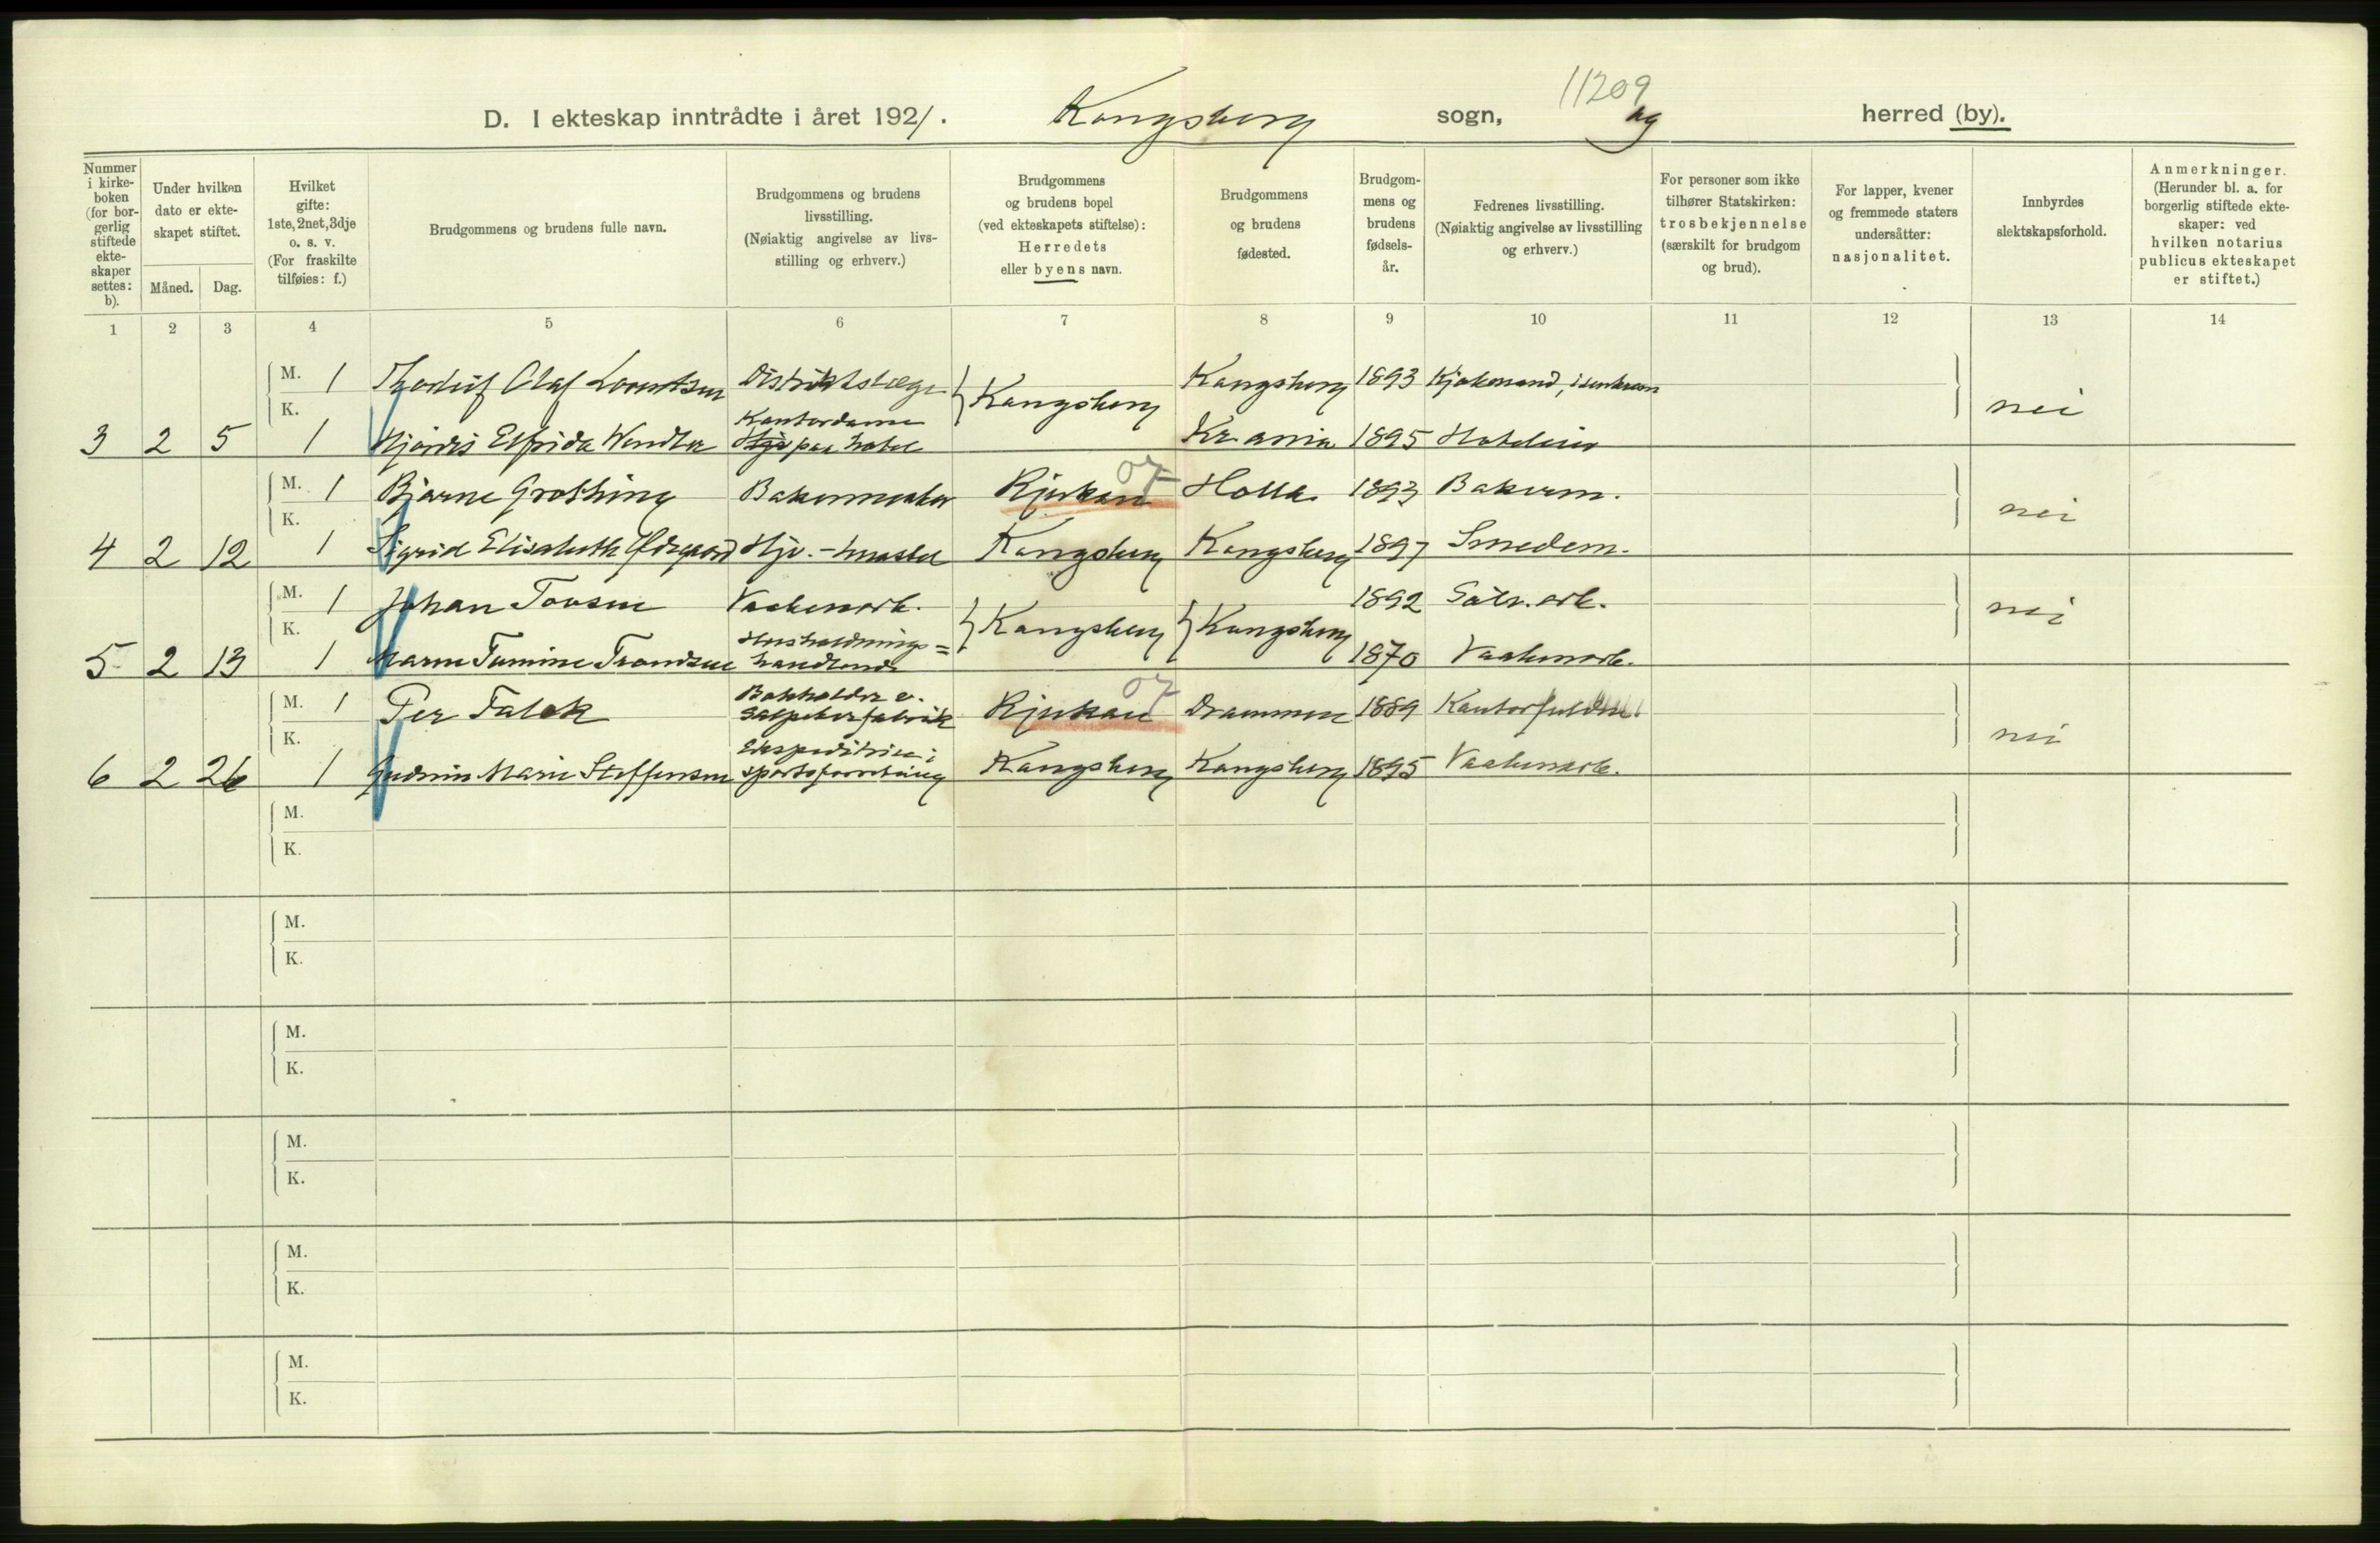 11209
D. I ekteskap inntrådte i året 1921. Kongsberg sogn, og herred (by).
Nummer i kirkeboken (for borgerlig stiftede ekteskaper settes: b).
Under hvilken dato er ekteskapet stiftet.
Måned. Dag.
Hvilket gifte: 1ste, 2net, 3dje o. s. v. (For fraskilte tilføies: f.)
Brudgommens og brudens fulle navn.
Brudgommens og brudens livsstilling. (Nøiaktig angivelse av livsstilling og erhverv.)
Brudgommens og brudens bopel (ved ekteskapets stiftelse): Herredets eller byens navn.
Brudgommens og brudens fødested.
Brudgommens og brudens fødselsår.
Fedrenes livsstilling. (Nøiaktig angivelse av livsstilling og erhverv.)
For personer som ikke tilhører Statskirken: trosbekjennelse (særskilt for brudgom og brud).
For lapper, kvener og fremmede staters undersåtter: nasjonalitet.
Innbyrdes slektskapsforhold.
Anmerkninger. (Herunder bl. a. for borgerlig stiftede ekteskaper: ved hvilken notarius publicus ekteskapet er stiftet.)
1 2 3 4 5 6 7 8 9 10 11 12 13 14
M. 1 Thorleif Olaf Lorentsen Distriktslæge Kongsberg Kongsberg 1893 nei
3 2 5 K. 1 Hjørdis Elfrida Wendler Kontordame paa hotel Kr.ania 1895 Hoteleier
M. 1 Bjarne Grothing Bakermester Rjukan 07 Holla 1893 Bakerm. nei
4 2 12 K. 1 Sigrid Elisabeth Kongsberg Kongsberg 1897 Smedem.
M. 1 Johan Vaabenarb. Kongsberg Kongsberg 1892 nei
5 2 13 K. 1 Maren Tomine Trondsen Husholdnings= handlende 1870 Vaabenarb.
M. 1 Per Falck Bokholder v. Salpeterfabrik Rjukan 07 Drammen 1889 nei
6 2 26 K. 1 Gudrun Marie Steffensen Ekspeditrice i sportsforretning Kongsberg Kongsberg 1895 Vaabenarb.
M.
K.
M.
K.
M.
K.
M.
K.
M.
K.
M.
K.